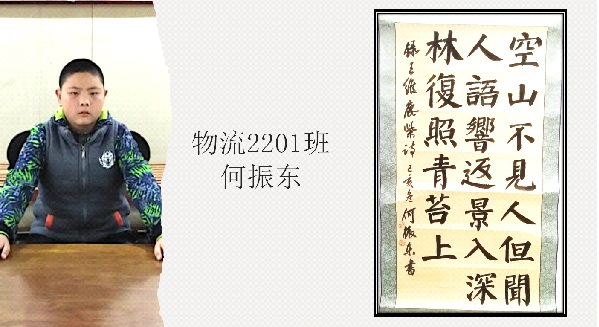 物流2201班
何振东
空山不見人但聞
人語響返景入深
林復照青苔上
録王維鹿柴詩 己亥冬 何振东書